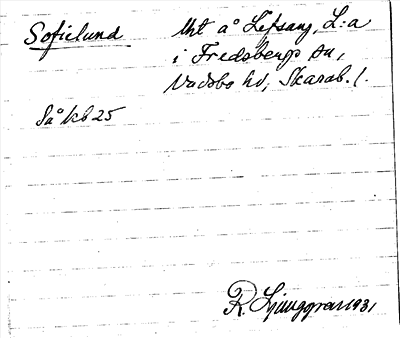 Sofielund
Uht å Lefsang, L:a
i Fredsbergs sn,
Vadsbo hd, Skarab. l.
Så kb 25
R. Ljunggren 1931